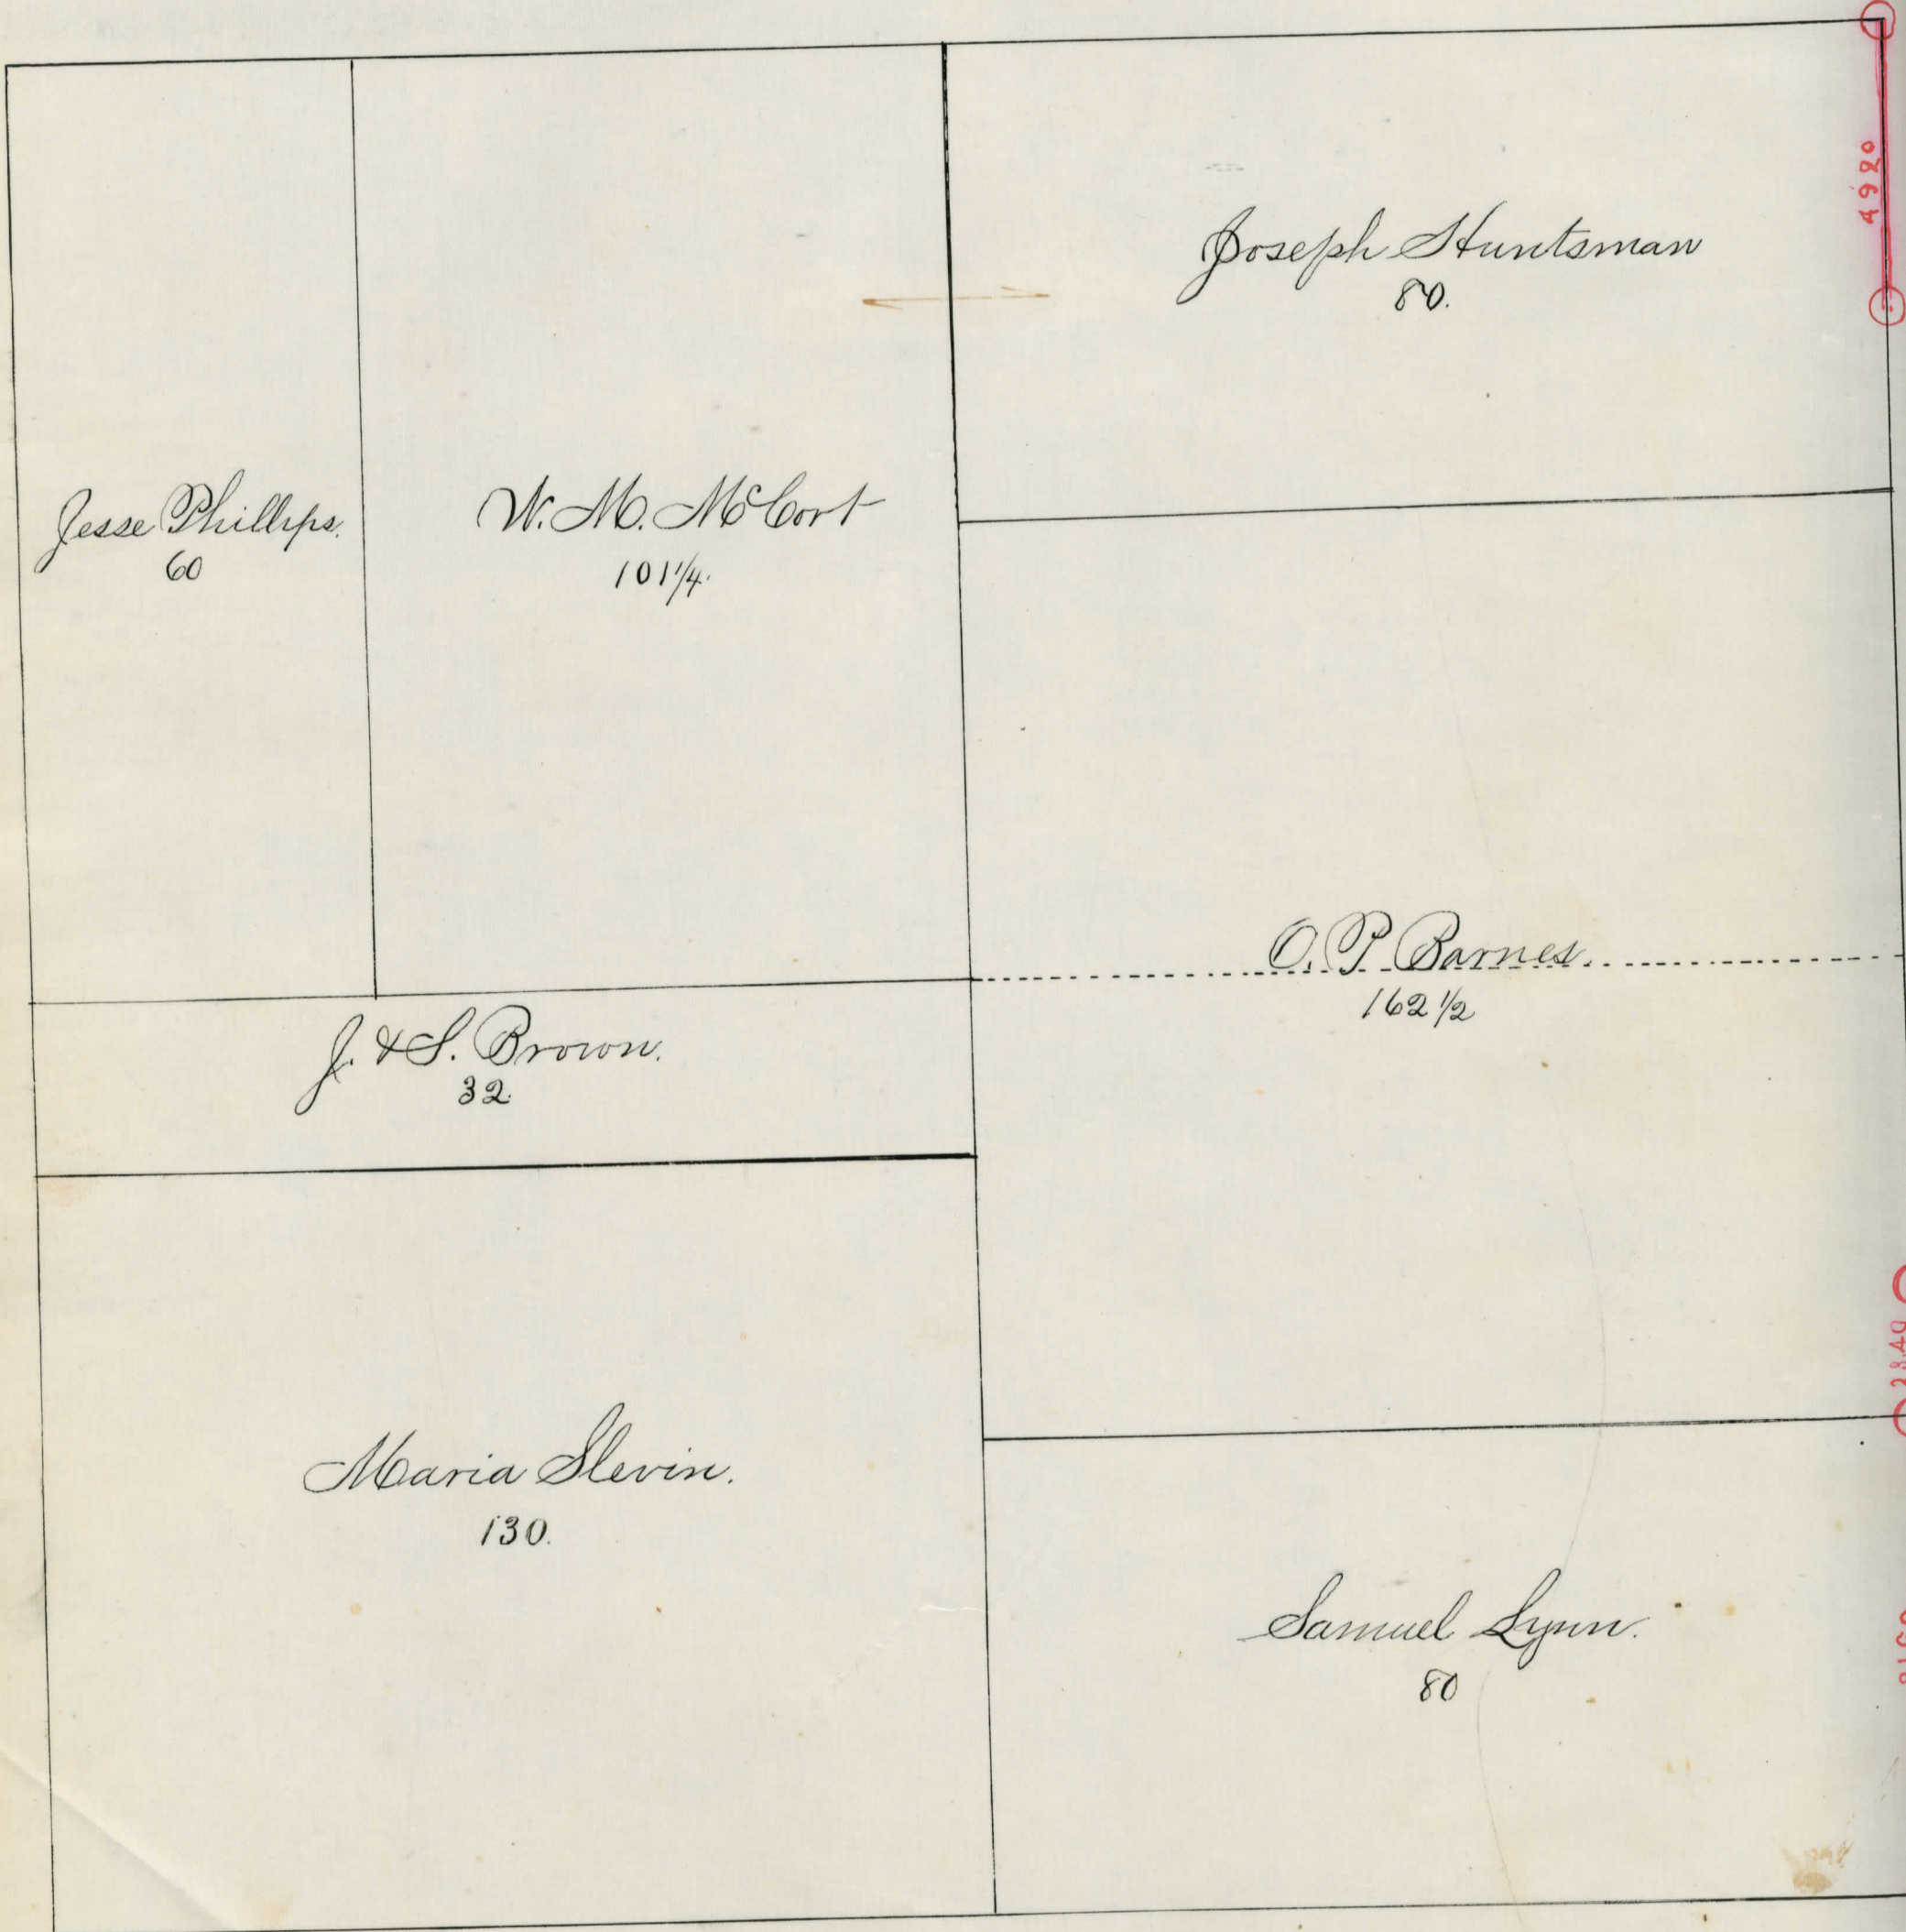 Joseph Huntsman
80.
4920
Jesse Phillips.
60
W. M. McCort
101 1/4.
O. P. Barnes.
162 1/2
J. & S. Brown.
32.
2840
Maria Slevin.
130.
Samuel Lynn.
80